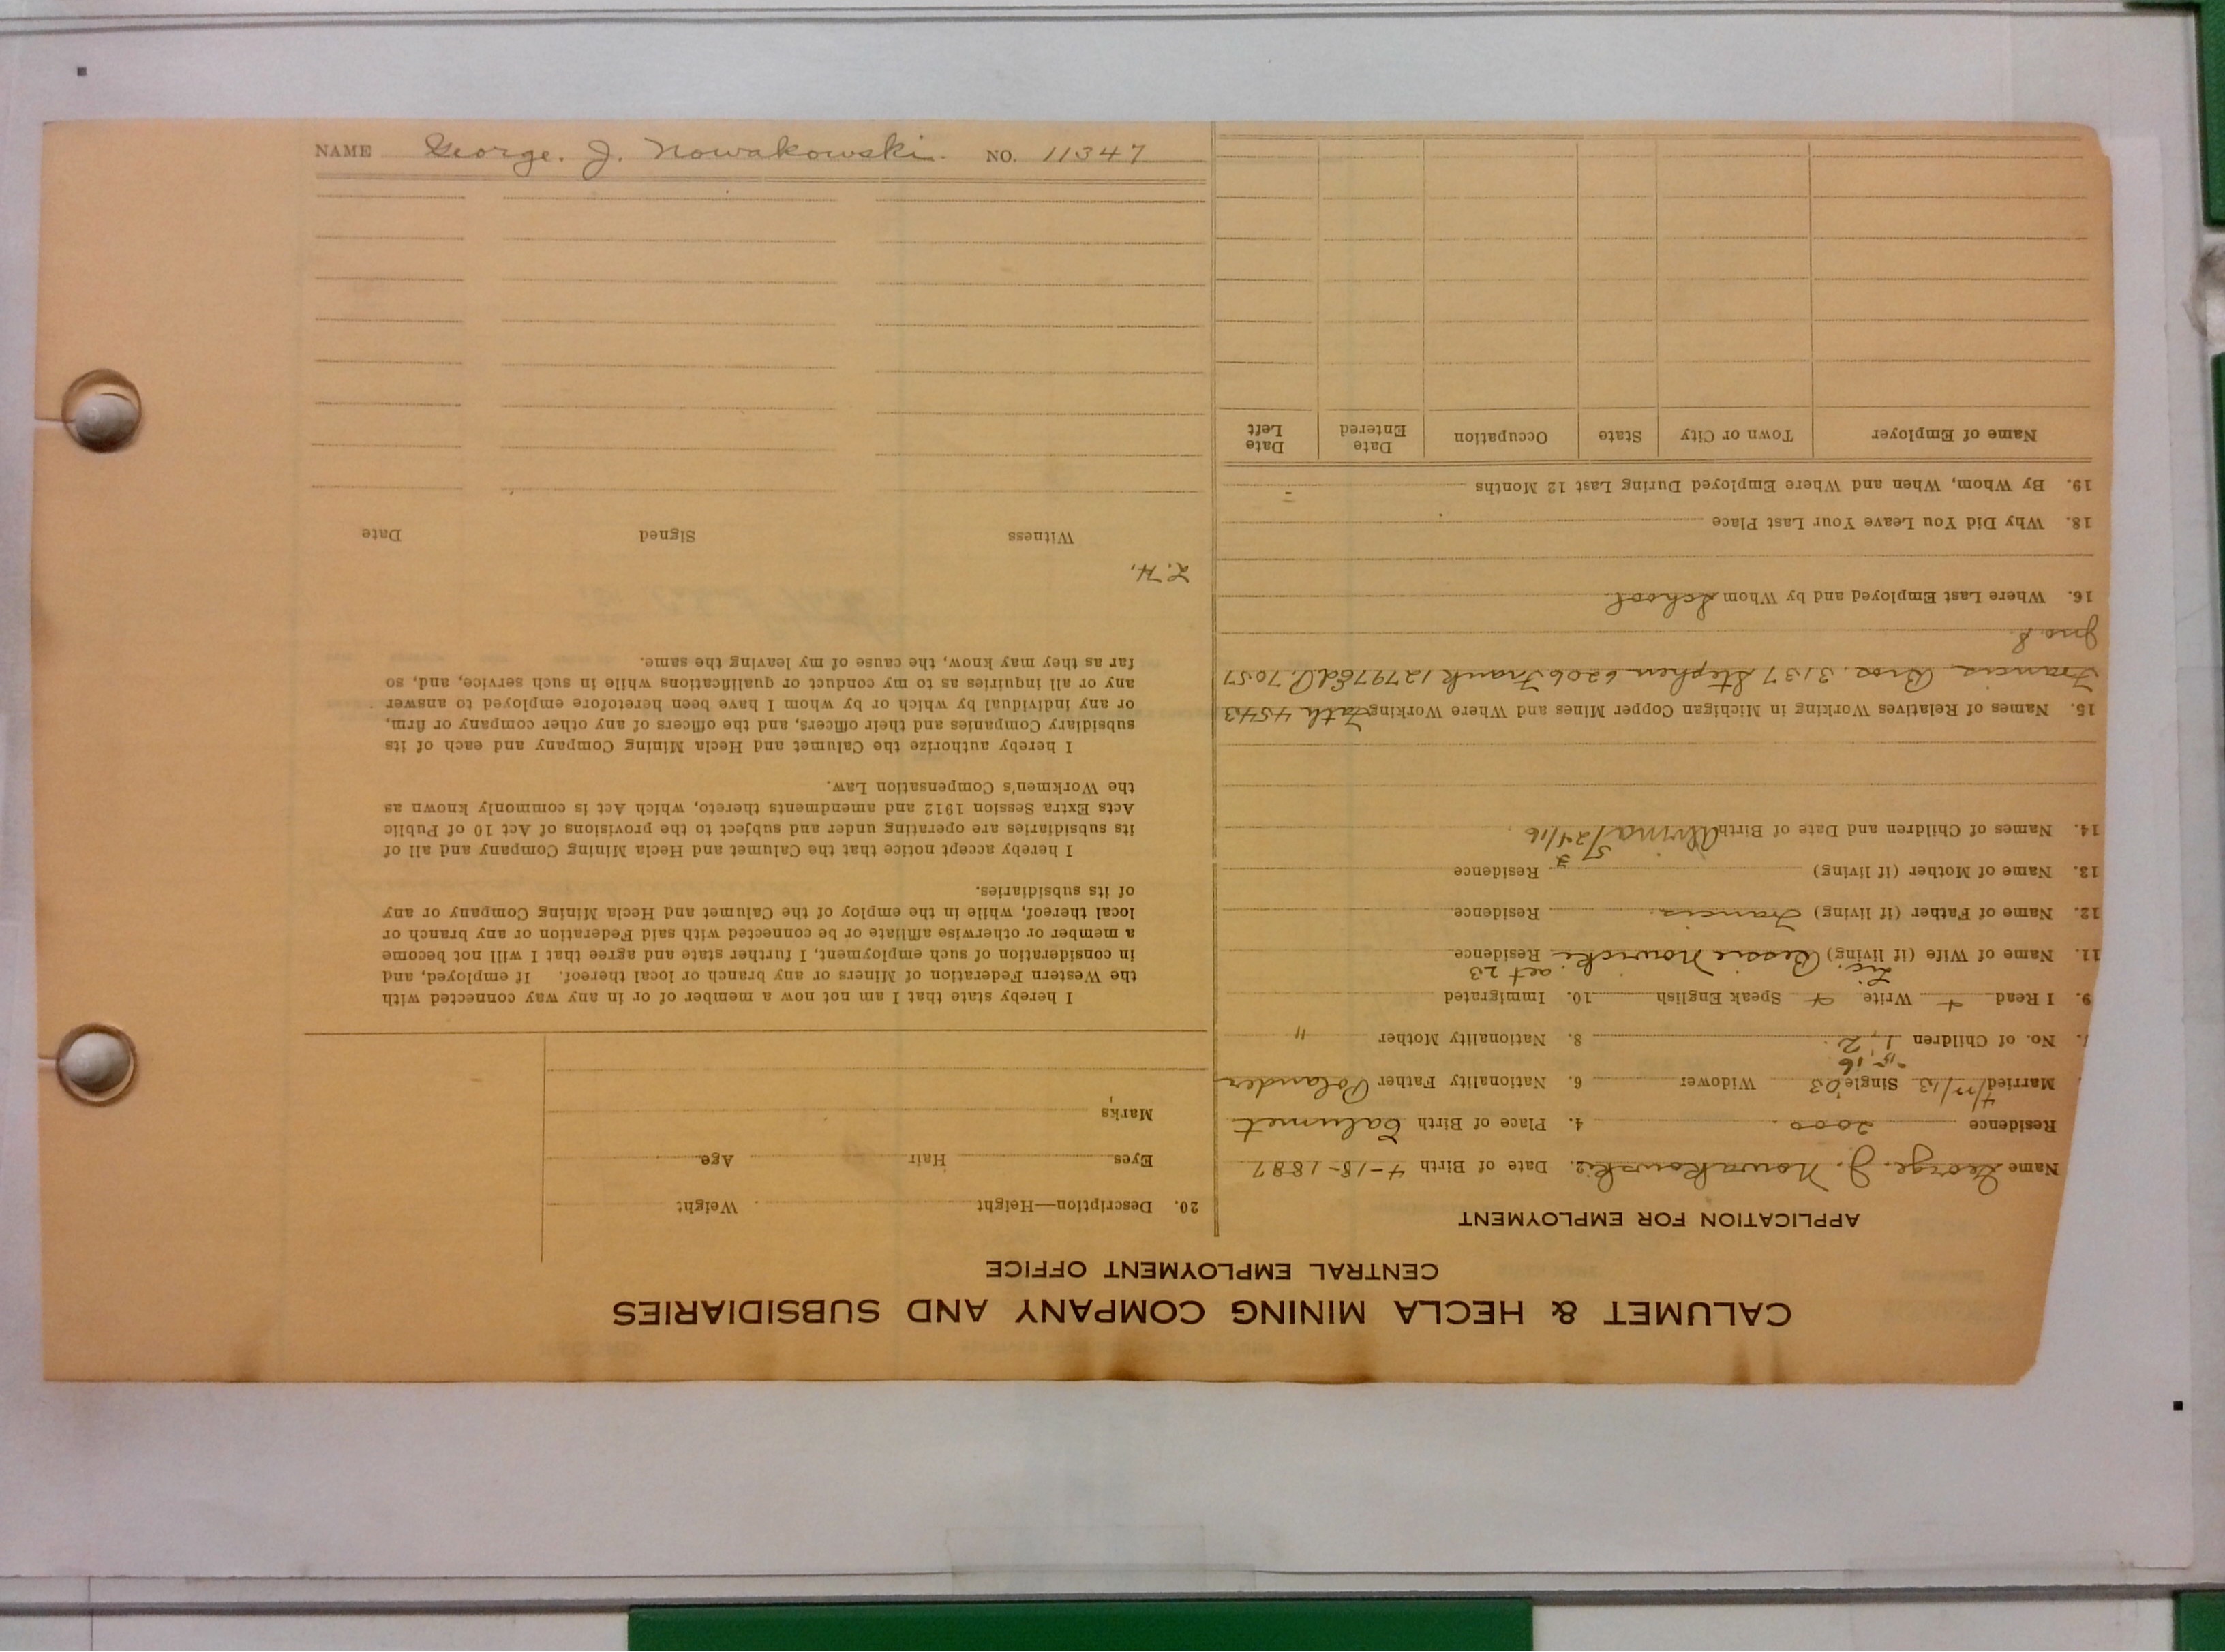 NAME George. J. Nowakowski. NO. 11347
CALUMET & HECLA MINING COMPANY AND SUBSIDIARIES
CENTRAL EMPLOYMENT OFFICE
APPLICATION FOR EMPLOYMENT
Name George. J. Nowakowski 2. Date of Birth 4-15-1887
Residence 2000 4. Place of Birth Calumet
Married Single '03 Widower 6. Nationality Father Polander
-15, 16
No. of Children 1, 2. 8. Nationality Mother "
9. I Read + Write + Speak English 10. Immigrated
11. Name of Wife (if living) Bessie Nowicki. aet 23 Residence
12. Name of Father (if living) Francis. Residence
13. Name of Mother (if living) Residence
14. Names of Children and Date of Birth 5/24/16
15. Names of Relatives Working in Michigan Copper Mines and Where Working Fath 4543
Francis Bros. 3137 Stephen 6206 Frank 12797 Ed. P. 7057
16. Where Last Employed and by Whom School.
18. Why Did You Leave Your Last Place
19. By Whom, When and Where Employed During Last 12 Months -
Name of Employer Town or City State Occupation Date Entered Date Left
20. Description—Height Weight
Eyes Hair Age
Marks
I hereby state that I am not now a member of or in any way connected with
the Western Federation of Miners or any branch or local thereof. If employed, and
in consideration of such employment, I further state and agree that I will not become
a member or otherwise affiliate or be connected with said Federation or any branch or
local thereof, while in the employ of the Calumet and Hecla Mining Company or any
of its subsidiaries.
I hereby accept notice that the Calumet and Hecla Mining Company and all of
its subsidiaries are operating under and subject to the provisions of Act 10 of Public
Acts Extra Session 1912 and amendments thereto, which Act is commonly known as
the Workmen's Compensation Law.
I hereby authorize the Calumet and Hecla Mining Company and each of its
subsidiary Companies and their officers, and the officers of any other company or firm,
or any individual by which or by whom I have been heretofore employed to answer
any or all inquiries as to my conduct or qualifications while in such service, and, so
far as they may know, the cause of my leaving the same.
Z. H.
Witness Signed Date